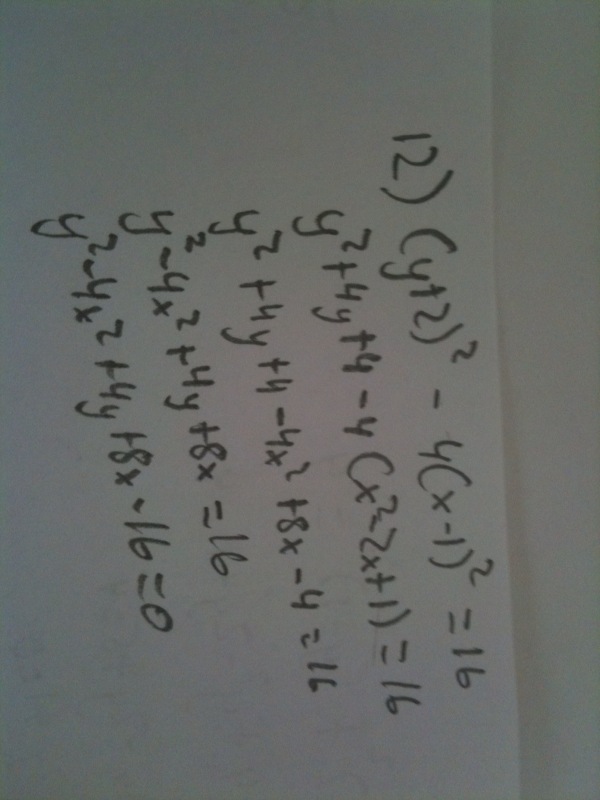 12) (y+2)² - 4(x-1)² = 16
y²+4y+4-4(x²-2x+1) = 16
y²+4y+4-4x²+8x-4=16
y²-4x²+4y+8x=16
y²-4x²+4y+8x-16=0